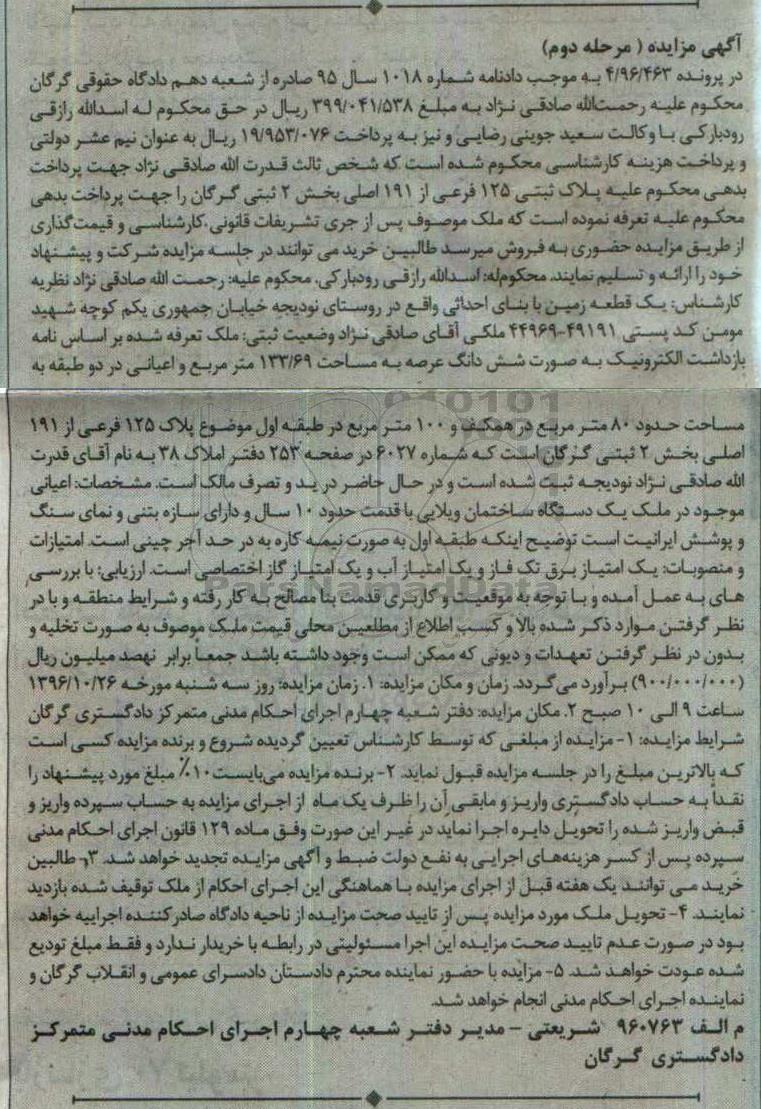 آگهی مزایده ( مرحله دوم)
در پرونده ۴/۹۶/۴۶۳ به موجب دادنامه شماره ۱۰۱۸ سال ۹۵ صادره از شعبه دهم دادگاه حقوقی گرگان
محکوم علیه رحمت‌الله صادقی نژاد به مبلغ ۳۹۹/۰۴۱/۵۳۸ ریال در حق محکوم له اسدالله رازقی
رودبارکی با وکالت سعید جوینی رضایی و نیز به پرداخت ۱۹/۹۵۳/۰۷۶ ریال به عنوان نیم عشر دولتی
و پرداخت هزینه کارشناسی محکوم شده است که شخص ثالث قدرت الله صادقی نژاد جهت پرداخت
بدهی محکوم علیه پلاک ثبتی ۱۲۵ فرعی از ۱۹۱ اصلی بخش ۲ ثبتی گرگان را جهت پرداخت بدهی
محکوم علیه تعرفه نموده است که ملک موصوف پس از جری تشریفات قانونی،کارشناسی و قیمت‌گذاری
از طریق مزایده حضوری به فروش میرسد طالبین خرید می توانند در جلسه مزایده شرکت و پیشنهاد
خود را ارائه و تسلیم نمایند. محکوم‌له: اسدالله رازقی رودبارکی. محکوم علیه: رحمت الله صادقی نژاد نظریه
کارشناس: یک قطعه زمین با بنای احداثی واقع در روستای نودیجه خیابان جمهوری یکم کوچه شهید
مومن کد پستی ۴۹۱۹۱-۴۴۹۶۹ ملکی آقای صادقی نژاد وضعیت ثبتی: ملک تعرفه شده بر اساس نامه
بازداشت الکترونیک به صورت شش دانگ عرصه به مساحت ۱۳۳/۶۹ متر مربع و اعیانی در دو طبقه به
مساحت حدود ۸۰ متر مربع در همکف و ۱۰۰ متر مربع در طبقه اول موضوع پلاک ۱۲۵ فرعی از ۱۹۱
اصلی بخش ۲ ثبتی گرگان است که شماره ۶۰۲۷ در صفحه ۲۵۳ دفتر املاک ۳۸ به نام آقای قدرت
الله صادقی نژاد نودیجه ثبت شده است و در حال حاضر در ید و تصرف مالک است. مشخصات: اعیانی
موجود در ملک یک دستگاه ساختمان ویلایی با قدمت حدود ۱۰ سال و دارای سازه بتنی و نمای سنگ
و پوشش ایرانیت است توضیح اینکه طبقه اول به صورت نیمه کاره به در حد آجر چینی است. امتیازات
و منصوبات: یک امتیاز برق تک فاز و یک امتیاز آب و یک امتیاز گاز اختصاصی است. ارزیابی: با بررسی
های به عمل آمده و با توجه به موقعیت و کاربری قدمت بنا مصالح به کار رفته و شرایط منطقه و با در
نظر گرفتن موارد ذکر شده بالا و کسب اطلاع از مطلعین محلی قیمت ملک موصوف به صورت تخلیه و
بدون در نظر گرفتن تعهدات و دیونی که ممکن است وجود داشته باشد جمعاً برابر نهصد میلیون ریال
(۹۰۰/۰۰۰/۰۰۰) برآورد می‌گردد. زمان و مکان مزایده: ۱. زمان مزایده: روز سه شنبه مورخه ۱۳۹۶/۱۰/۲۶
ساعت ۹ الی ۱۰ صبح ۲. مکان مزایده: دفتر شعبه چهارم اجرای احکام مدنی متمرکز دادگستری گرگان
شرایط مزایده: ۱- مزایده از مبلغی که توسط کارشناس تعیین گردیده شروع و برنده مزایده کسی است
که بالاترین مبلغ را در جلسه مزایده قبول نماید. ۲- برنده مزایده می‌بایست ۱۰٪ مبلغ مورد پیشنهاد را
نقداً به حساب دادگستری واریز و مابقی آن را ظرف یک ماه از اجرای مزایده به حساب سپرده واریز و
قبض واریز شده را تحویل دایره اجرا نماید در غیر این صورت وفق ماده ۱۲۹ قانون اجرای احکام مدنی
سپرده پس از کسر هزینه‌های اجرایی به نفع دولت ضبط و آگهی مزایده تجدید خواهد شد. ۳- طالبین
خرید می توانند یک هفته قبل از اجرای مزایده با هماهنگی این اجرای احکام از ملک توقیف شده بازدید
نمایند. ۴- تحویل ملک مورد مزایده پس از تایید صحت مزایده از ناحیه دادگاه صادرکننده اجراییه خواهد
بود در صورت عدم تایید صحت مزایده این اجرا مسئولیتی در رابطه با خریدار ندارد و فقط مبلغ تودیع
شده عودت خواهد شد. ۵- مزایده با حضور نماینده محترم دادستان دادسرای عمومی و انقلاب گرگان و
نماینده اجرای احکام مدنی انجام خواهد شد.
م الف ۹۶۰۷۶۳ شریعتی – مدیر دفتر شعبه چهارم اجرای احکام مدنی متمرکز
دادگستری گرگان